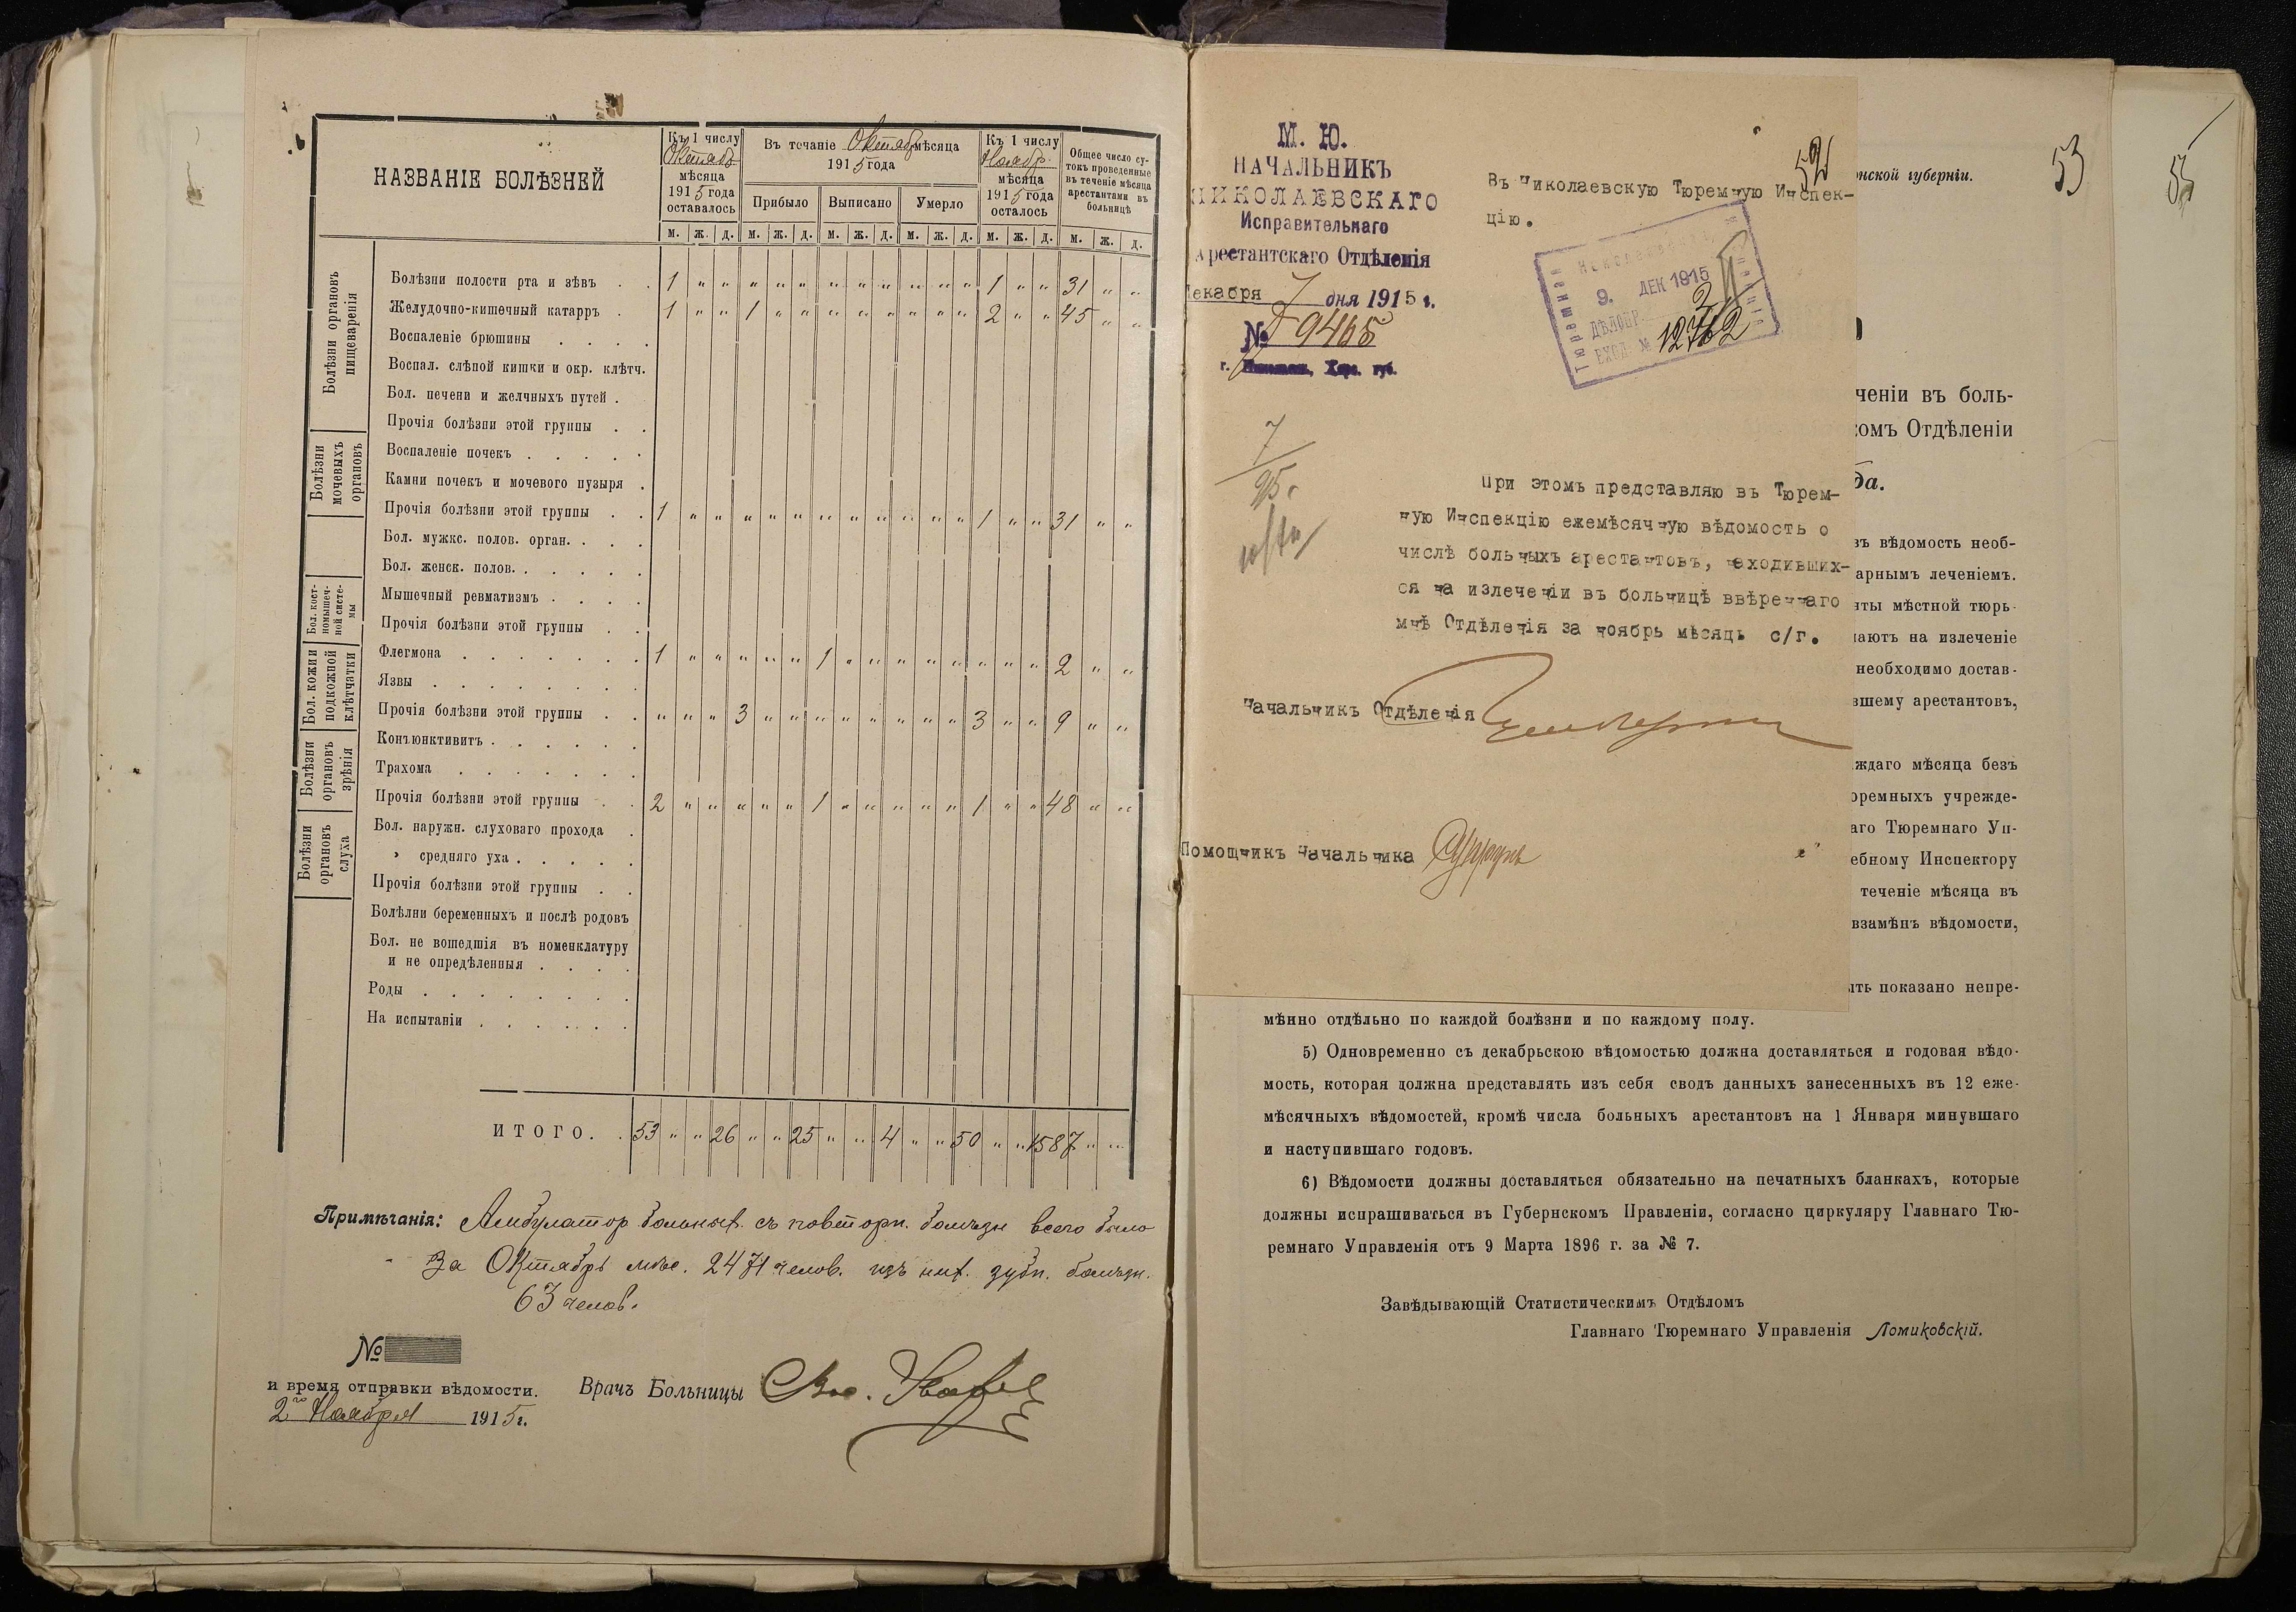 НАЗВАНІЕ БОЛѢЗНЕЙ
Къ 1 числу
Октябр
мѣсяца
1915 года
оставалось
Въ течаніе Октябр мѣсяца
1915 года
Прибыло
Выписано
Умерло
Къ 1 числу
Ноябр.
мѣсяца
1915 года
осталось
Общее число су-
токъ проведенные
въ теченіе мѣсяца
арестантами въ
больницѣ
м. ж. д. м. ж. д. м. ж. д. м. ж. д. м. ж. д. м. ж. д.
Болѣзни органовъ
пищеваренія
Болѣзни полости рта и зѣвъ . . 1 " " " " " " " " " " " 1 " " 31 " "
Желудочно-кишечный катарръ . 1 " " 1 " " " " " " " " 2 " " 45 " "
Воспаленіе брюшины . . . .
Воспал. слѣпой кишки и окр. клѣтч.
Бол. печени и желчныхъ путей .
Прочія болѣзни этой группы . .
Болѣзни
мочевыхъ
органовъ
Воспаленіе почекъ . . . . .
Камни почекъ и мочевого пузыря .
Прочія болѣзни этой группы . . 1 " " " " " " " " " " " 1 " " 31 " "
Бол. мужс. полов. орган. . . .
Бол. женск. полов. . . . . .
Бол. кост-
номышеч-
ной систе-
мы
Мышечный ревматизмъ . . . .
Прочія болѣзни этой группы . .
Бол. кожи и
подкожной
клѣтчатки
Флегмона . . . . . . . 1 " " " " " 1 " " " " " " " " 2 " "
Язвы . . . . . . . .
Прочія болѣзни этой группы . . " " " 3 " " " " " " " " 3 " " 9 " "
Болѣзни
органовъ
зрѣнія
Конъюнктивитъ . . . . . .
Трахома . . . . . . .
Прочія болѣзни этой группы . . 2 " " " " " 1 " " " " " 1 " " 48 " "
Болѣзни
органовъ
слуха
Бол. наружн. слуховзго прохода .
" средняго уха . . . . .
Прочія болѣзни этой группы . .
Болѣлни беременныхъ и послѣ родовъ
Бол. не вошедшія въ номенклатуру
и не опредѣленныя . . . .
Роды . . . . . . . .
На испытаніи . . . . . .
ИТОГО. . 53 " " 26 " " 25 " " 4 " " 50 " " 1587 " "
Примѣчанія: Амбулатор. больныхъ съ повторн. болѣзн всего было
За Октябрь мѣс. 2471 челов. изъ них. зубн. болѣзн.
63 челов.
№
и время отправки вѣдомости.
2го Ноября 1915 г.
Врачъ Больницы
М. Ю.
НАЧАЛЬНИКЪ
НИКОЛАЕВСКАГО
Исправительнаго
Арестантскаго Отдѣленія
Декабря 7 дня 1915 г.
№ 9465
г. Николаевъ, Херс. губ.
52
Въ Николаевскую Тюремную Инспек-
цію.
9. ДЕК 1915
ДѢЛОПР.
ВХОД. № 12762
При этомъ представляю въ Тюрем-
ную Инспекцію ежемѣсячную вѣдомость о
числѣ больныхъ арестантовъ, находивших-
ся на излеченіи въ больницѣ ввѣреннаго
мнѣ Отдѣленія за ноябрь мѣсяцъ с/г.
Начальникъ Отдѣленія
Помощникъ Начальника
53
онской губерніи.
55
ченіи въ боль-
комъ Отдѣленіи
да.
въ вѣдомость необ-
арнымъ леченіемъ.
нты мѣстной тюрь-
пають на излеченіе
необходимо достав-
вшему арестантовъ,
ждаго мѣсяца безъ
оремныхъ учрежде-
аго Тюремнаго Уп-
ебному Инспектору
теченіе мѣсяца въ
взамѣнъ вѣдомости,
ыть показано непре-
мѣнно отдѣльно по каждой болѣзни и по каждому полу.
5) Одновременно съ декабрьскою вѣдомостью должна доставляться и годовая вѣдо-
мость, которая должна представлять изъ себя сводъ данныхъ занесенныхъ въ 12 еже-
мѣсячныхъ вѣдомостей, кромѣ числа больныхъ арестантовъ на 1 Января минувшаго
и наступившаго годовъ.
6) Вѣдомости должны доставляться обязательно на печатныхъ бланкахъ, которые
должны испрашиваться въ Губернскомъ Правленіи, согласно циркуляру Главнаго Тю-
ремнаго Управленія отъ 9 Марта 1896 г. за № 7.
Завѣдывающій Статистическимъ Отдѣломъ
Главнаго Тюремнаго Управленія Ломиковскій.